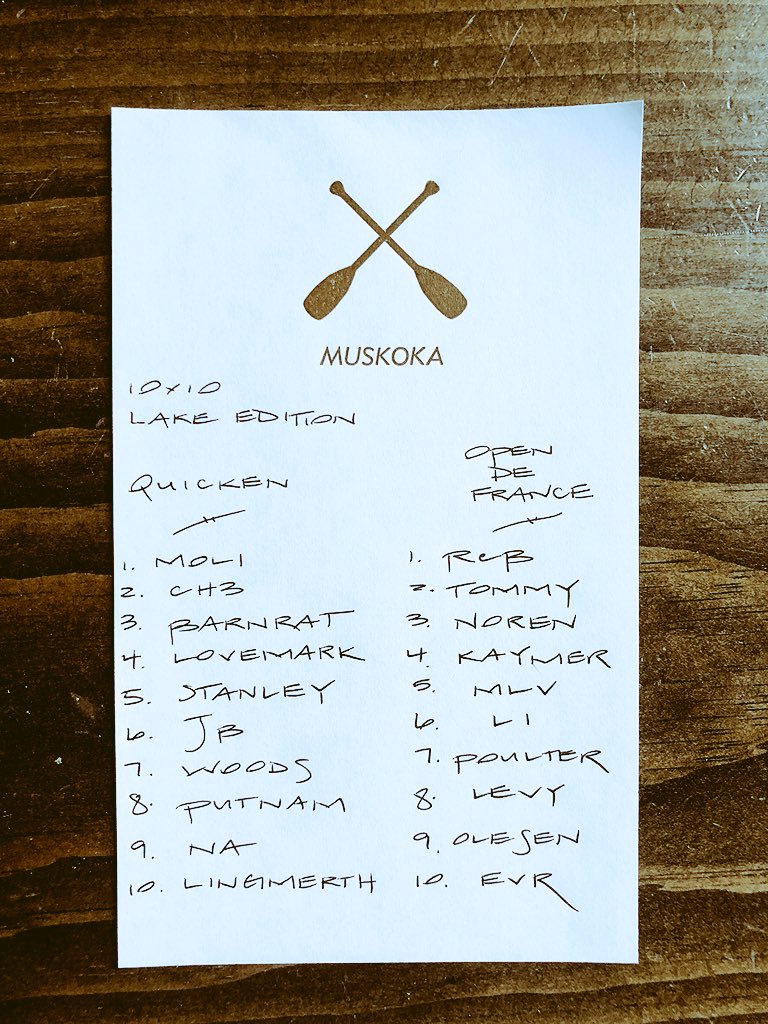 MUSKOKA
10x10
LAKE EDITION
QUICKEN
1. MOLI
2. CH3
3. BARNRAT
4. LOVEMARK
5. STANLEY
6. JB
7. WOODS
8. PUTNAM
9. NA
10. LINGMERTH
OPEN
DE
FRANCE
1. RCB
2. TOMMY
3. NOREN
4. KAYMER
5. MLV
6. LI
7. POULTER
8. LEVY
9. OLESEN
10. EVR